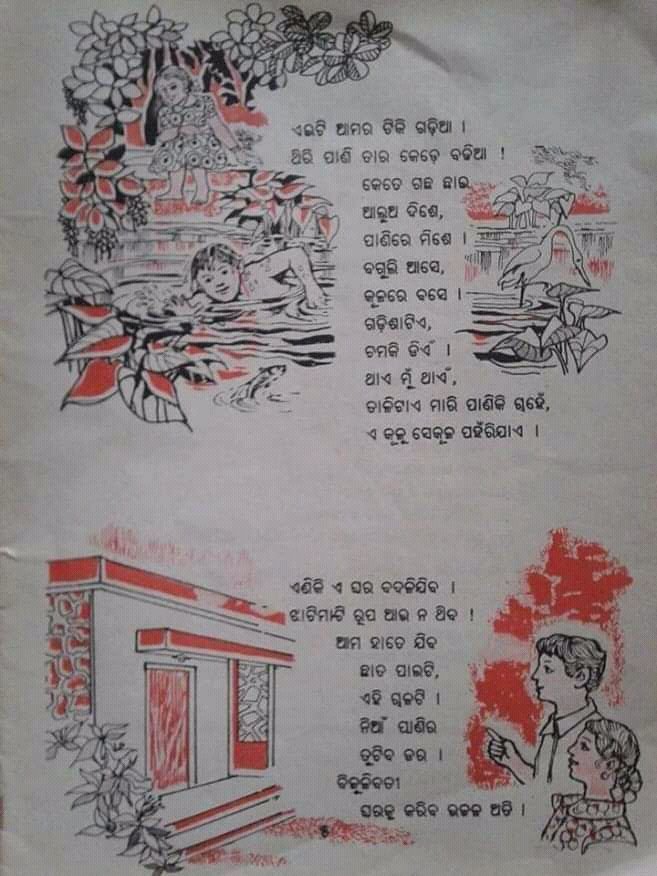 ଏଇଟି ଆମର ଟିକି ଗଡ଼ିଆ ।
ଥିରି ପାଣି ତାର କେଡ଼େ ବଢିଆ !
କେତେ ଗଛ ଛାଇ
ଆଲୁଅ ଦିଶେ,
ପାଣିରେ ମିଶେ ।
ବଗୁଲି ଆସେ,
କୂଳରେ ବସେ ।
ଗଡ଼ିଶାଟିଏ,
ଚମକି ଡିଏଁ ।
ଥାଏ ମୁଁ ଥାଏଁ,
ତାଳିଟାଏ ମାରି ପାଣିକି ଚାହେଁ,
ଏ କୂଳୁ ସେକୂଳ ପହଁରିଯାଏ ।
ଏଣିକି ଏ ଘର ବଦଳିଯିବ ।
ଝାଟିମାଟି ରୂପ ଆଉ ନ ଥିବ !
ଆମ ହାତେ ଯିବ
ଛାତ ପାଲଟି,
ଏହି ଚାଳଟି ।
ନିଆଁ ପାଣିର
ତୁଟିବ ଡର ।
ବିଜୁଳିବତୀ
ଘରକୁ କରିବ ଉଜଳ ଅତି ।